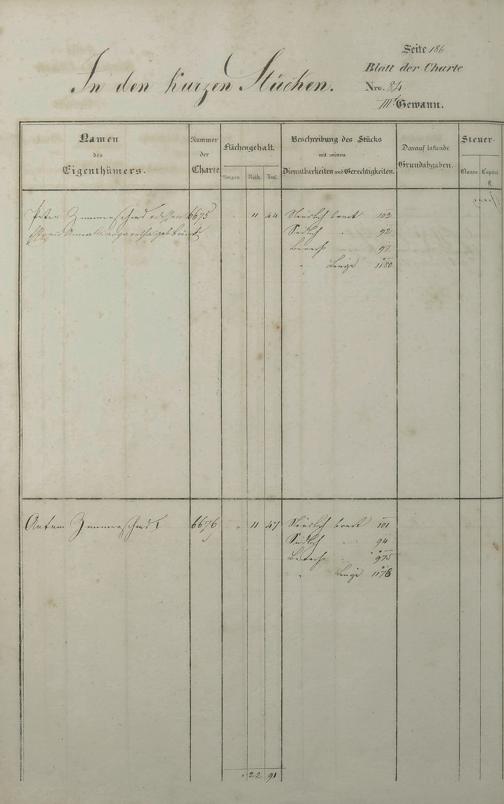 Seite 186
Blatt der Charte
In den kurzen Stücken.
Nro. 8/4
IIIte Gewann.
Namen des Eigenthümers.
Nummer der Charte
Flächengehalt.
Morgen Rth. Fuß.
Beschreibung des Stücks mit seinen Dienstbarkeiten und Gerechtigkeiten.
Darauf haftende Grundabgaben.
Steuer-
Classe Capital
6675 11 44 Nördlich breit 102
Südlich 92
97
Länge 1180
Anton 6676 11 47 Nördlich breit 101
Südlich 94
975
Länge 1178
22 91